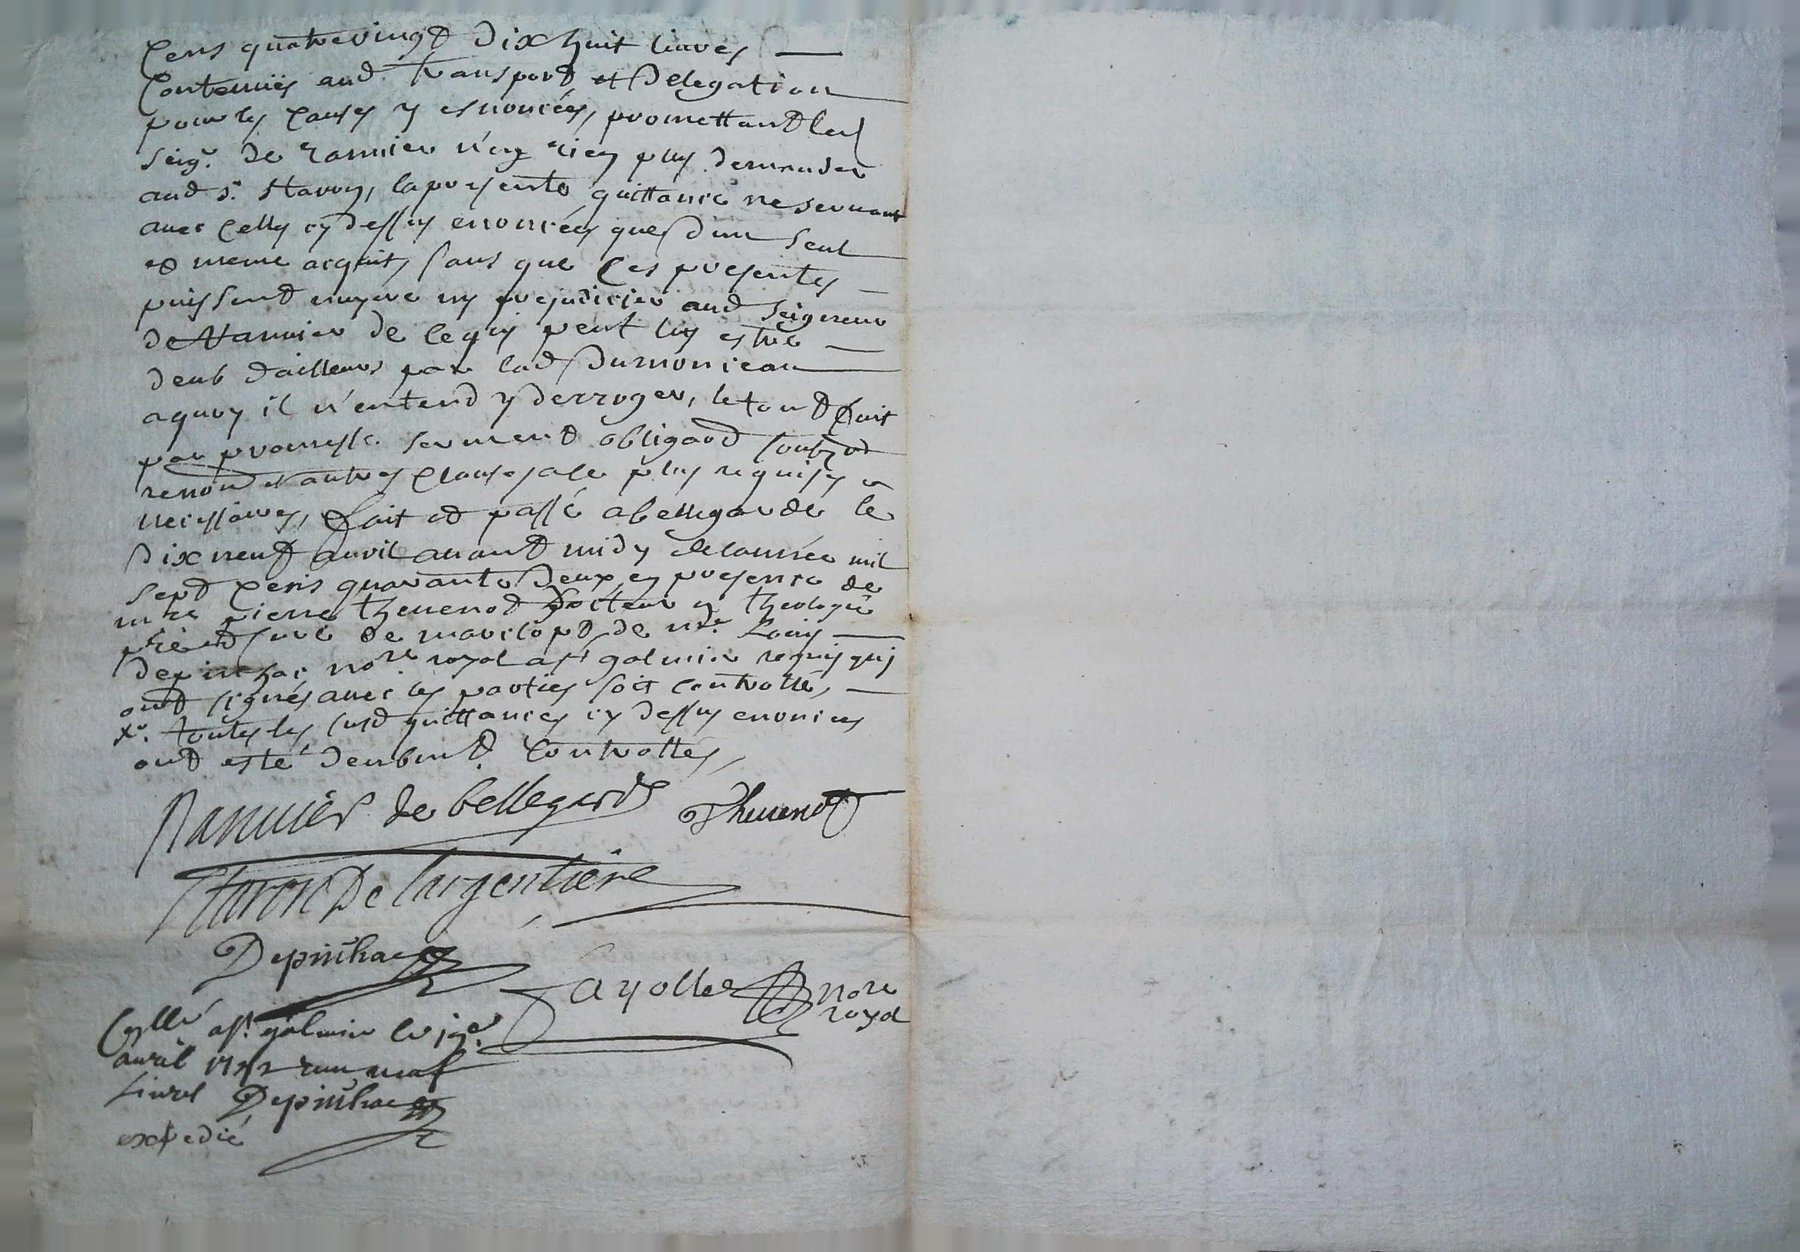 Cens quatrevingt dix huit livres
Contenües aud. transport et delegation
pour les causes y esnoncées, promettant led
seigr. de rannier n'en rien plus demander
aud sr. Staron, la presente quittance ne servant
avec celles cy dessus enoncées que d'un seul
et meme acquit, sans que ces presentes
puissent nuyre ny prejudicier aud seigneur
de Rannier de ce qui peut luy estre
deub d'ailleurs par lad Dumonceau
aquoy il n'entend y derroger, le tout fait
par promesse serment obligaôn soubzôn
renonôn et autres clauses a ce plus requises et
necessaires, fait et passé a bellegarde le
dix neuf avril avant midy de l'année mil
sept cens quarante deux en presence de
mre pierre thevenot docteur en theologie
ptre et curé de marclopt, de me. Louis
depinhac nore royal a st galmier requis qui
ont signés avec les parties soit controllé,
xo. toutes les susd quittances cy dessus enoncées
ont esté deubmt. Controllés,
Rannier de bellegarde Thevenot
Staron De largentiere
Depinhac
fayolle nore
royal
Collé a st. galmier le 19e.
avril 1742 recu neuf
Livres Depinhac
expedié